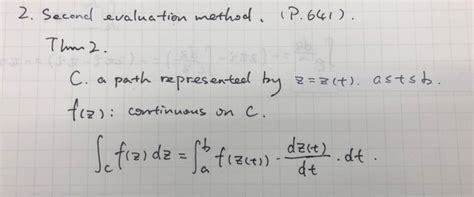 2. Second evaluation method. (P.641).
Thm 2.
C. a path represented by z=z(t). a≤t≤b.
f(z): continuous on C.
∫_C f(z) dz = ∫_a^b f(z(t)) · dz(t)/dt · dt.